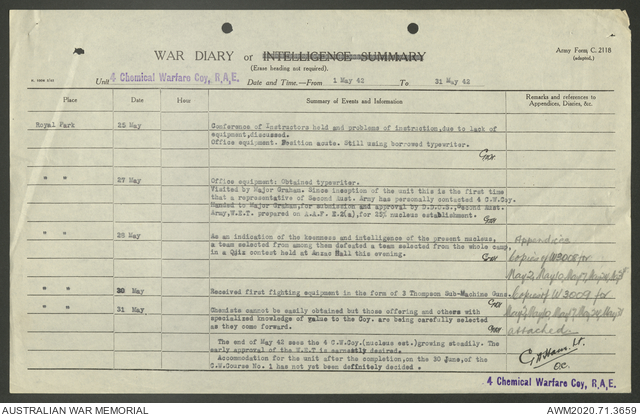 WAR DIARY or INTELLIGENCE SUMMARY
Army Form, C. 2118
(adapted.)
(Erase heading not required).
Unit 4 Chemical Warfare Coy, R.A.E.
Date and Time.—From 1 May 42 To 31 May 42
Place Date Hour Summary of Events and Information Remarks and references to
Appendices, Diaries, &c.
Royal Park 25 May Conference of Instructors held and problems of instruction,due to lack of
equipment,discussed.
Office equipment. Position acute. Still using borrowed typewriter.
" " 27 May Office equipment: Obtained typewriter.
Visited by Major Graham. Since inception of the unit this is the first time
that a representative of Second Aust. Army has personally contacted 4 C.W.Coy.
Handed to Major Graham,for submission and approval by Second Aust.
Army,W.E.T. prepared on A.A.F. for 25% nucleus establishment.
" " 28 May As an indication of the keenness and intelligence of the present nucleus,
a team selected from among them defeated a team selected from the whole camp
in a Quiz contest held at Anzac Hall this evening.
Appendices
Copies of W3008 for
" " 30 May Received first fighting equipment in the form of 2 Thompson Sub-Machine Guns.
Copies of W 3009 for
" " 31 May Chemists cannot be easily obtained but those offering and others with
specialized knowledge of value to the Coy. are being carefully selected
as they come forward.
attached
The end of May 42 sees the 4 C.W.Coy.(nucleus est.)growing steadily. The
early approval of the W.E.T is earnestly desired.
Accommodation for the unit after the completion,on the 30 June,of the
C.W.Course No. 1 has not yet been definitely decided .
Lt.
O.C.
4 Chemical Warfare Coy, R.A.E.
AUSTRALIAN WAR MEMORIAL
AWM2020.71.3659